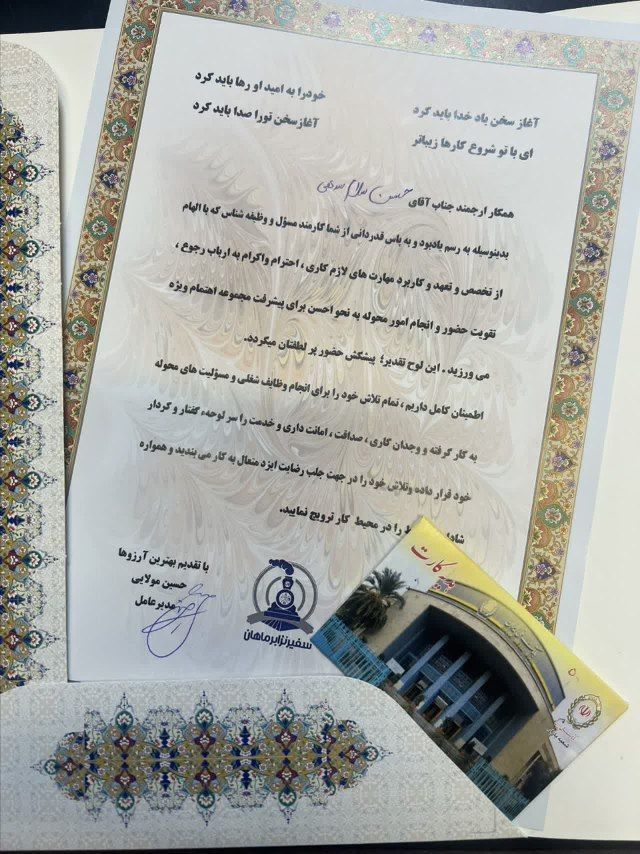 آغاز سخن یاد خدا باید کرد
خودرا به امید او رها باید کرد
ای با تو شروع کارها زیباتر
آغازسخن تورا صدا باید کرد
همکار ارجمند جناب آقای حسن سلام
بدینوسیله به رسم یادبود و به پاس قدردانی از شما کارمند مسؤل و وظیفه شناس که با الهام
از تخصص و تعهد و کاربرد مهارت های لازم کاری ، احترام واکرام به ارباب رجوع ،
تقویت حضور و انجام امور محوله به نحو احسن برای پیشرفت مجموعه اهتمام ویژه
می ورزید . این لوح تقدیر؛ پیشکش حضور پر لطفتان میگردد.
اطمینان کامل داریم ، تمام تلاش خود را برای انجام وظایف شغلی و مسؤلیت های محوله
به کار گرفته و وجدان کاری ، صداقت ، امانت داری و خدمت را سر لوحه، گفتار و کردار
خود قرار داده وتلاش خود را در جهت جلب رضایت ایزد متعال به کار می بندید و همواره
را در محیط کار ترویج نمایید.
با تقدیم بهترین آرزوها
حسین مولایی
مدیرعامل
سفیرترابرماهان
کارت